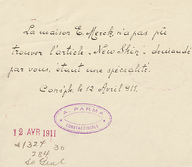 La maison E. Merck n'a pas pu
trouver l'article "New Skin", demandé
par vous, étant une spécialité.
Consple. le 12 Avril 911.
A. PARMA
CONSTANTINOPLE
12 AVR 1911
1327
784